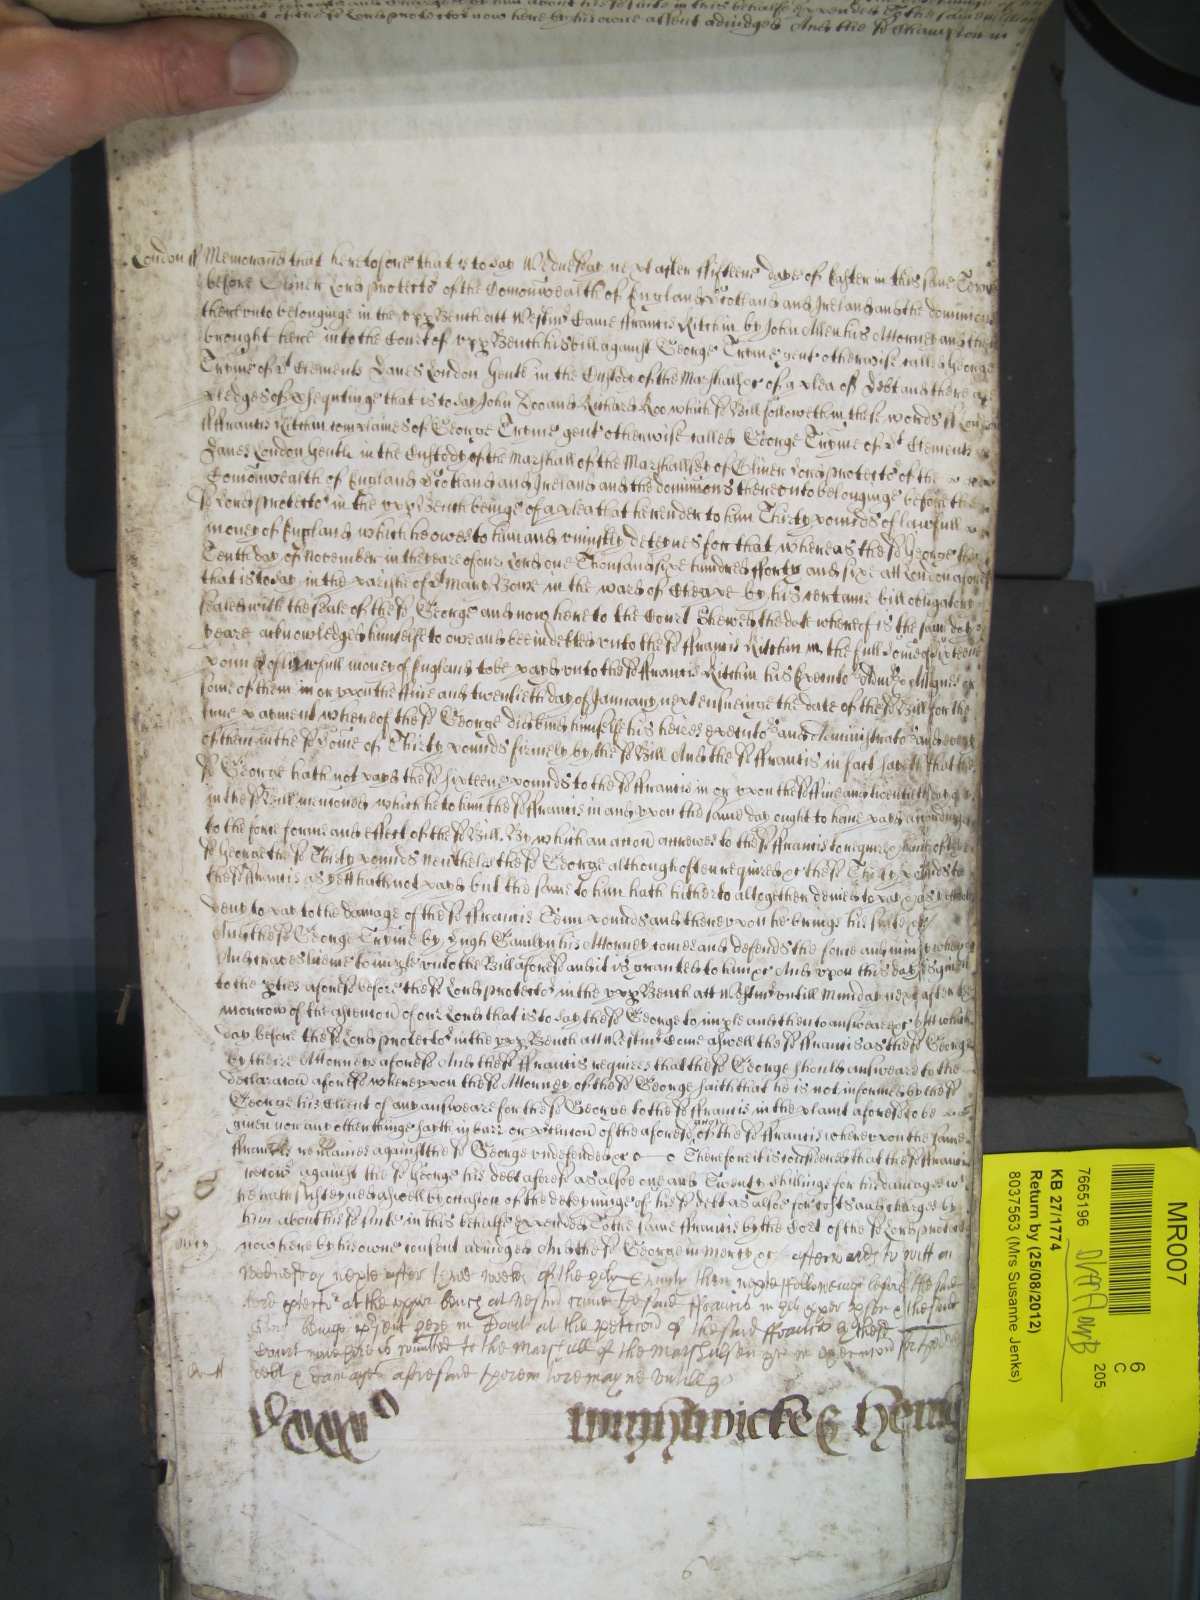 of the sd Lord protector now here by his owne assent adiudged And the sd Champion in
London ss Memorand that heretofore that is to say Wednesday next after ffifteene dayes of Easter in this same Terme
before Oliver Lord protector of the Comonwealth of England Scotland and Ireland and the dominions
thereunto belonginge in the upp Bench att Westmr Came ffrancis Kitchin by John Allen his Attorney and then
brought here into the Court of upp Bench his bill against George Tryme gent otherwise called George
Tryme of St Clements Danes London Gentl in the Custody of the Marshall &c of a plea of Debt and there are
pledges of p'sequtinge that is to say John Doo and Richard Roo which sd Bill followeth in these words ss London
ss ffrancis Kitchin complaines of George Tryme gent otherwise called George Tryme of St Clements
Danes London Gentl in the Custody of the Marshall of the Marshallsey of Oliver Lord protector of the
Comonwealth of England Scotland and Ireland and the dominions thereunto belonginge before the
sd Lord protector in the upp Bench beinge of a plea that he render to him Thirty pounds of lawfull
money of England which he owes to him and uniustly deteynes for that whereas the sd George the
Tenth day of November in the yeare of our Lord one Thousand sixe hundred fforty and sixe att London aforesd
that is to say in the parishe of St Mary Bowe in the ward of Cheape by his certaine bill obligatory
sealed with the seale of the sd George and now here to the Court Shewed the date whereof is the same day &
yeare acknowledged himselfe to owe and bee indebted unto the sd ffrancis Kitchin in the full some of sixteene
pounds of lawfull money of England to be payd unto the sd ffrancis Kitchin his Executors Admrs or Assignes or
some of them in or upon the ffive and twentieth day of January next ensueinge the date of the sd Bill for the
true payment whereof the sd George did bind himselfe his heires executors and Administrators and every
of them in the sd Some of Thirty pounds firmely by the sd Bill And the sd ffrancis in fact sayeth that the
sd George hath not payd the sd sixteene pounds to the sd ffrancis in or upon the sd ffive and twentieth day
in the sd Bill mencioned which he to him the sd ffrancis in and upon the same day ought to have payd accordinge
to the force forme and effect of the sd Bill. By which an accon accrewed to the sd ffrancis to require & have of the
sd George the sd Thirty pounds nevtheles the sd George although often required &c the sd Thirty pounds to
the sd ffrancis as yett hath not payd but the same to him hath hitherto altogether denied to pay & as yett doth
deny to pay to the damage of the sd ffrancis Tenn pounds and thereupon he brings his suite &c
And the sd George Tryme by Hugh Hamlyn his Attorney comes and defends the force and iniury when &c
And craves licence to imple unto the Bill aforesd and it is granted to him &c And upon this day is given
to the pties aforesd before the sd Lord protector in the upp Bench att Westmr untill Munday next after the
morrow of the ascencon of our Lord that is to say the sd George to imple and then to answeare &c Att which
day before the sd Lord protector in the upp Bench att Westmr Come aswell the sd ffrancis as the sd George
by theire Attorneys aforesd And the sd ffrancis requires that the sd George should answeare to the
declaracon aforesd whereupon the sd Attorney of the sd George saith that he is not informed by the sd
George his Client of any answeare for the sd George to the sd ffrancis in the plaint aforesd to be
given nor any other thinge sayth in barr or p'clucon of the aforesd accon of the sd ffrancis whereupon the same
ffrancis remaines against the sd George undefended &c Therefore it is considered that the sd ffrancis
recover against the sd George his debt aforesd as alsoe one and Twenty shillinges for his damages wch
he hath susteyned aswell by occasion of the deteyninge of his sd debt as alsoe for costs and charges by
him about his sd suite in this behalfe expended To the same ffrancis by the Cort of the sd Lord protector
mercy now here by his owne consent adiudged And the sd George in mercy &c afterwards to witt on
Wednesday next after three weeks of the holy Trinity then next followeing before the said
lord protector at the upper bench at Westmr came the said ffrancis in his proper person & the said
George beinge present here in Court at the peticon of the said ffrancis by the sd
Court now here is comitted to the Marshall of the Marshalsea in execucon for the
debt & damages aforesaid therein to remayne untill &c
Wynhwicke & Henly
6
MR007
6
C
205
7665196
KB 27/1774
Return by (25/08/2012)
8037563 (Mrs Susanne Jenks)